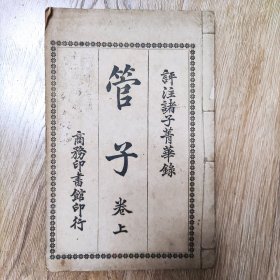 評注諸子菁華錄
管子 卷上
商務印書館印行